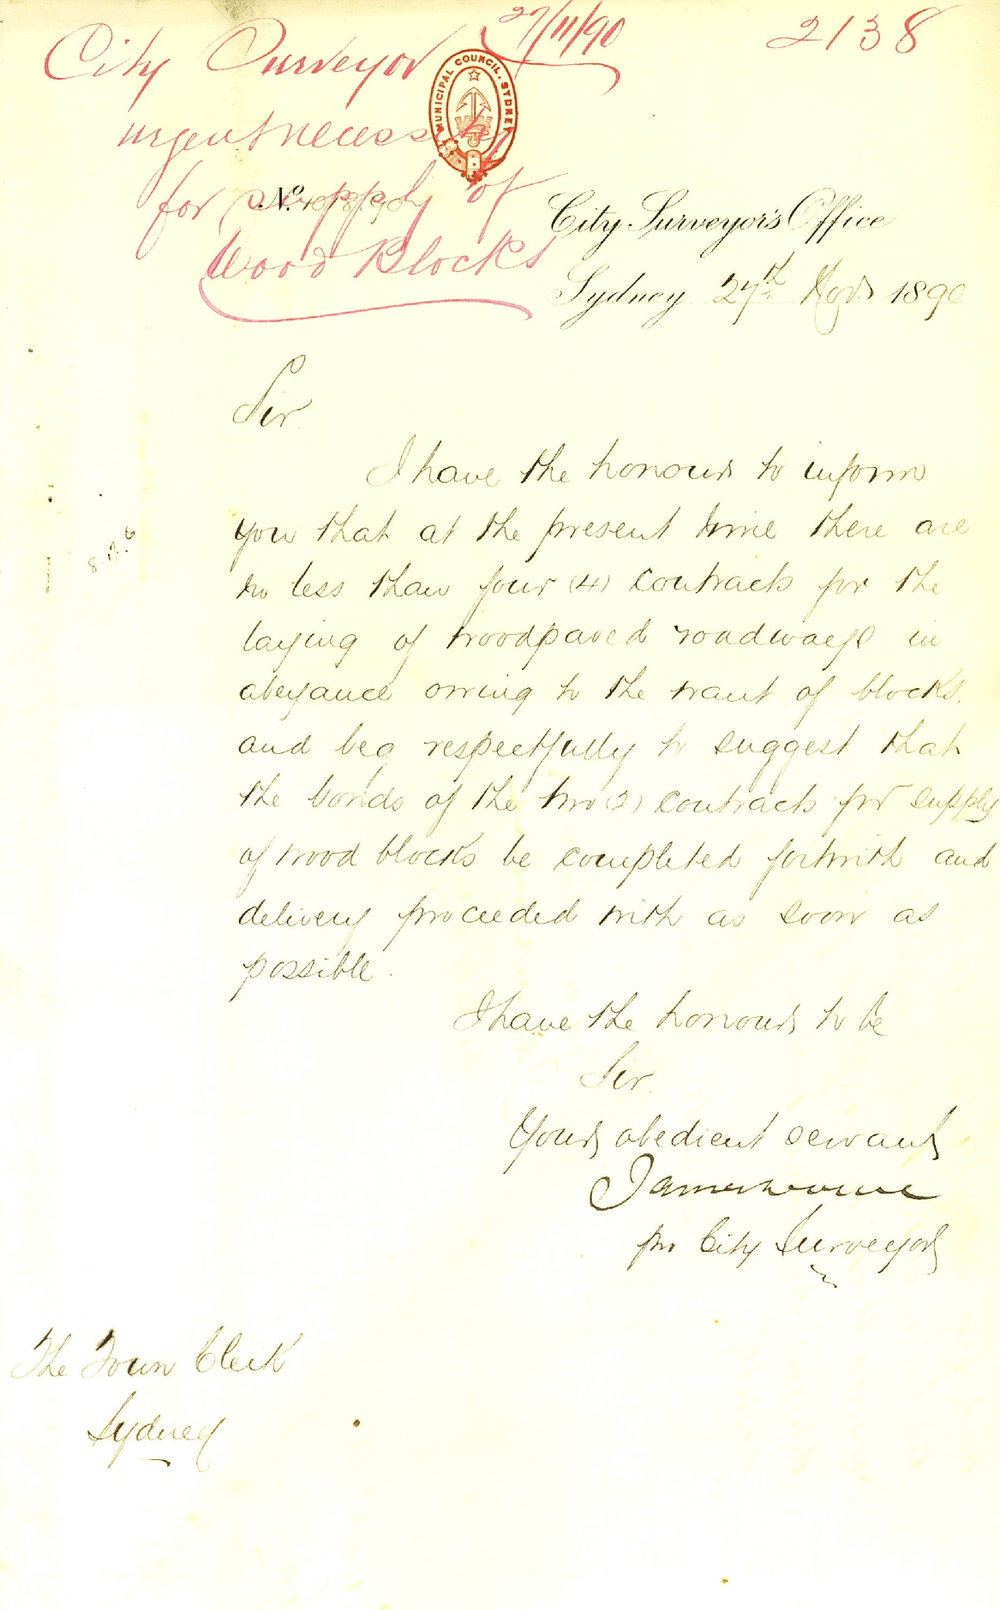 27/11/90
2138
City Surveyor
urgent necessity
for supply of
Wood Blocks
MUNICIPAL COUNCIL. SYDNEY
No.
City Surveyor's Office
Sydney 27th Novr 1890
Sir
I have the honour to inform
you that at the present time there are
no less than four (4) contracts for the
laying of woodpaved roadways in
abeyance owing to the want of blocks,
and beg respectfully to suggest that
the bonds of the two (2) contracts for supply
of wood blocks be completed fortwith and
delivery proceeded with as soon as
possible.
I have the honour to be
Sir.
Your obedient servant
pro City Surveyor
The Town Clerk
Sydney